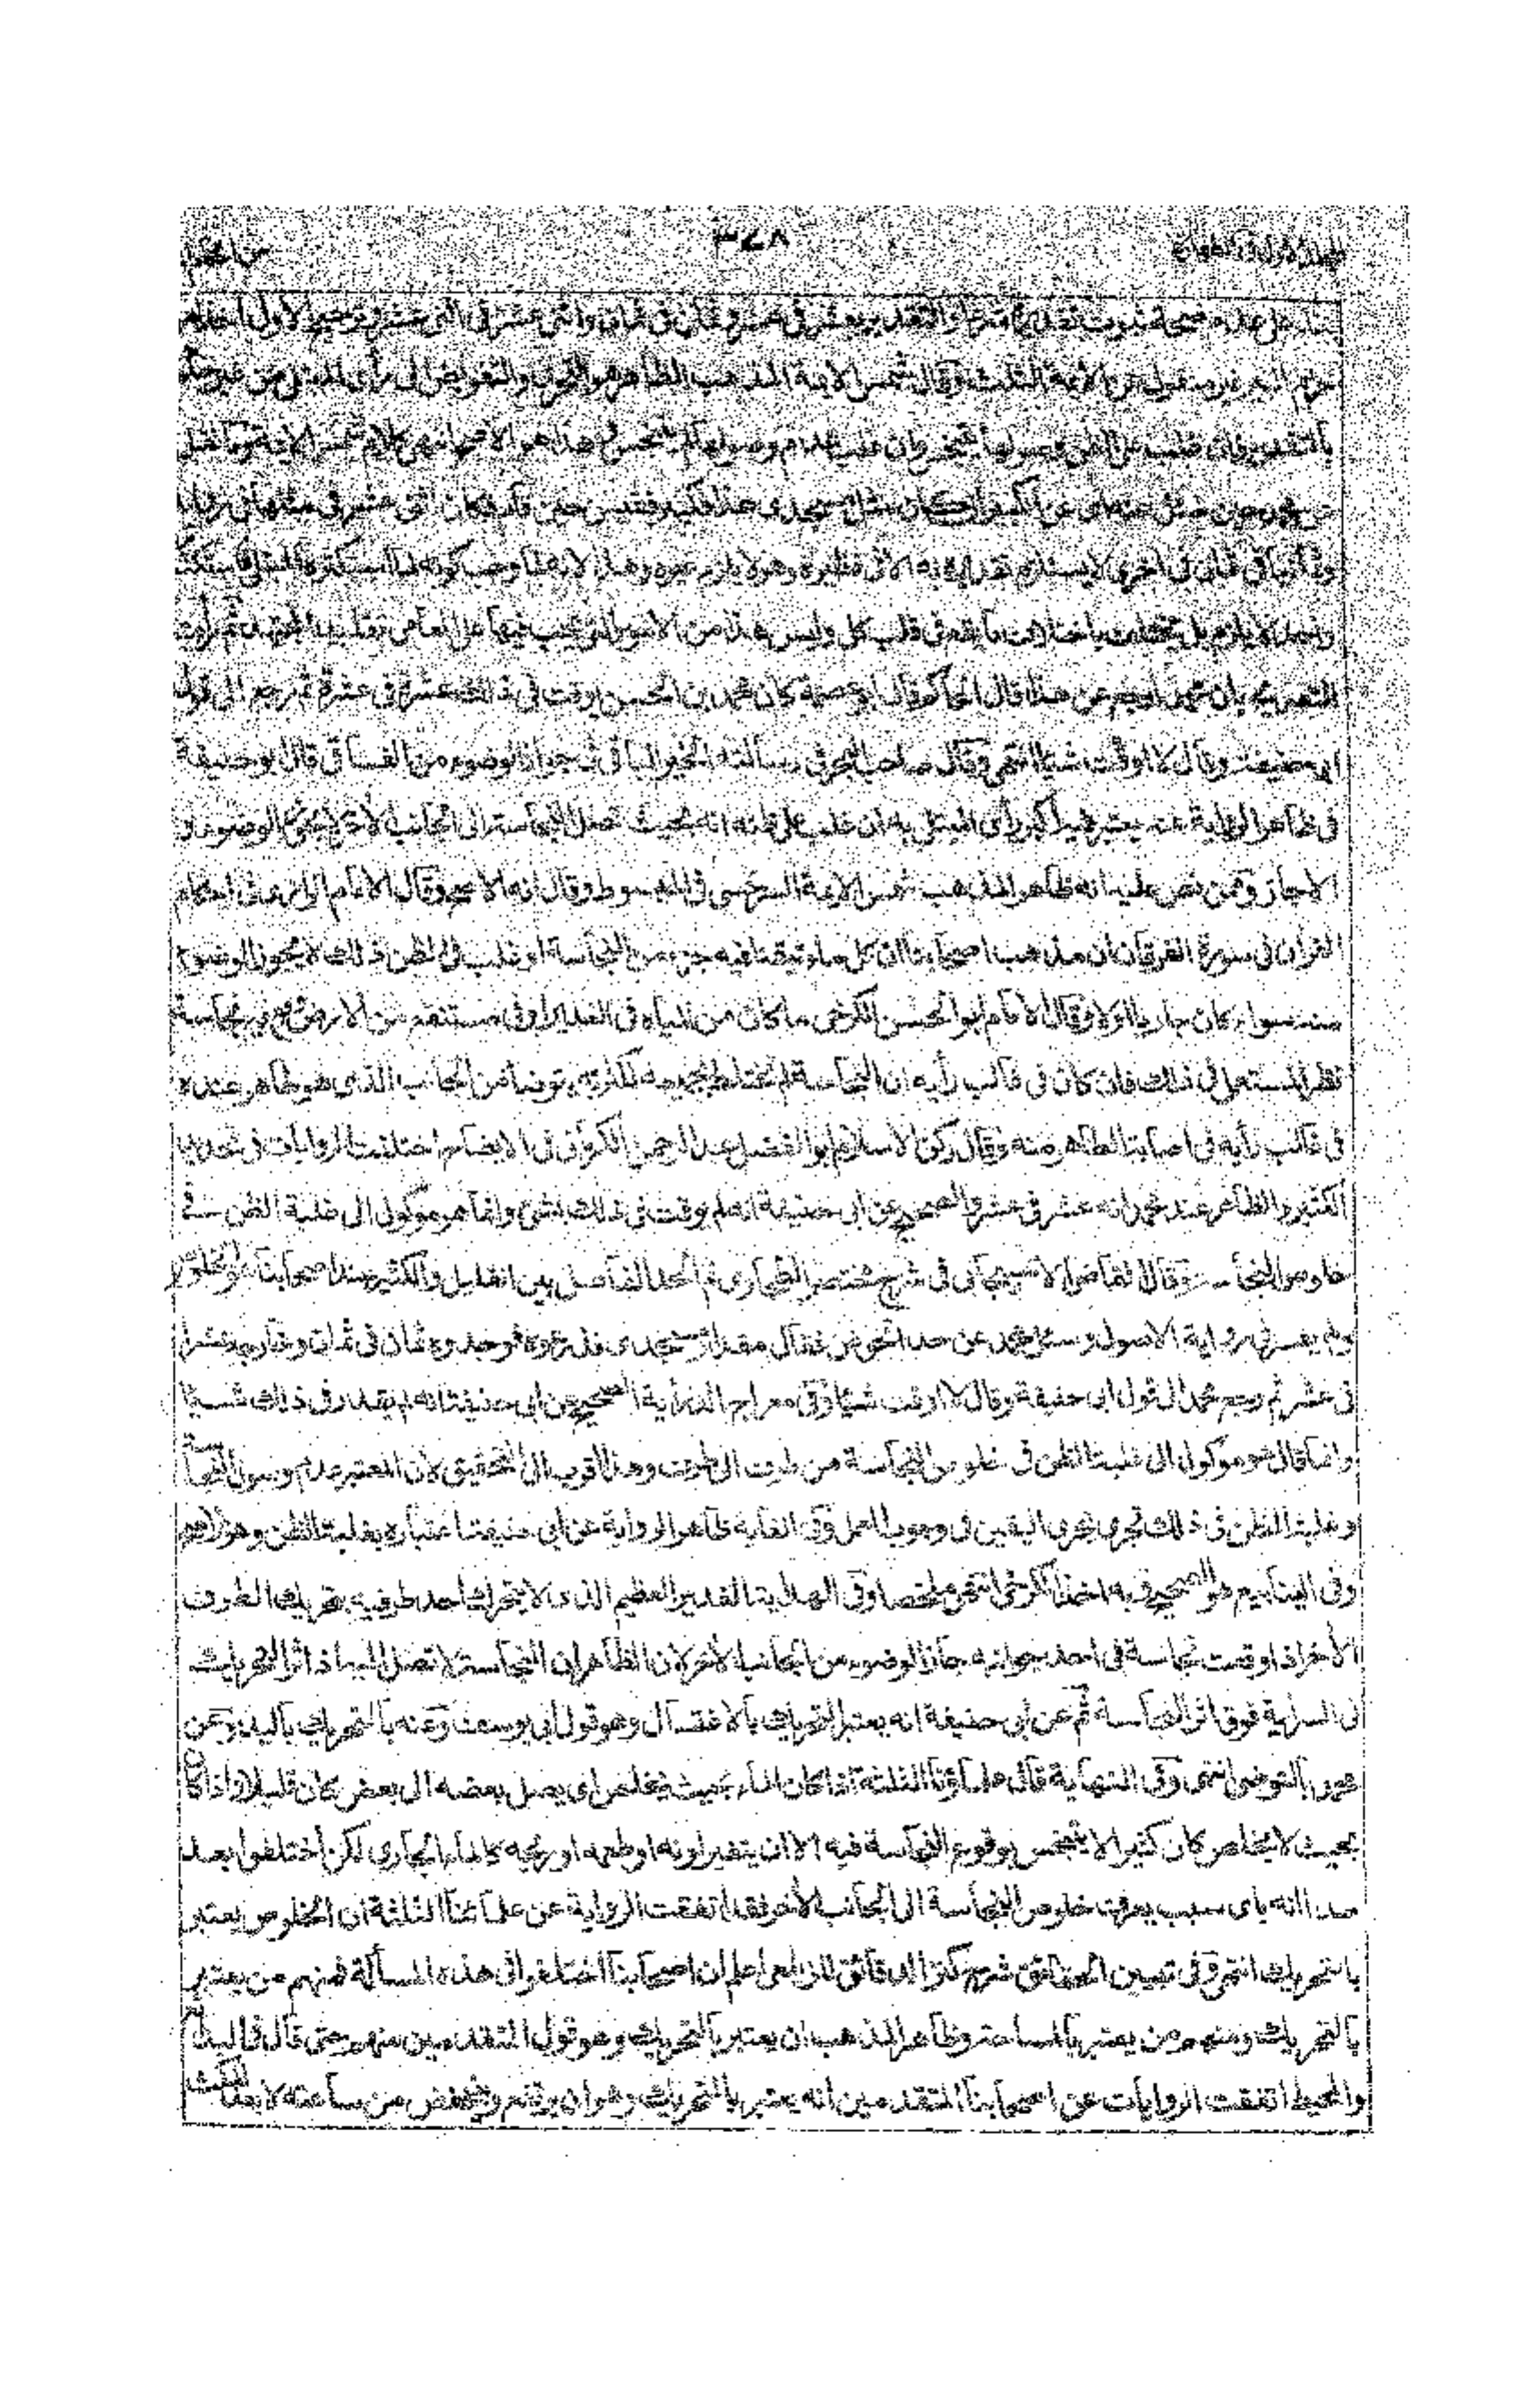 ٣٤٨
بناء على عدم صحة ثبوت تقديره شرعا والتقدير بعشر في عشر وثمان في ثمان واثني عشر في اثني عشر وترجيح الاول
غير منقول عن الائمة الثلثة وقال شمس الائمة المذهب الظاهر هو التحري والتفويض الى رأى المبتلى من غير حكم
بالتقدير فان غلب على الظن وصولها تنجس وان غلب عدم وصولها لم يتنجس وهذا هو الاصح انتهى كلام شمس الائمة وما نقل
عن محمد حين سئل عنه ان كان مثل مسجدي هذا فكثير فقيس حين قام فكان اثنى عشر في مثلها في رواية
وثمانيا في ثمان في اخرى لا يستلزم تقديره به الا في نظيره وهو لا يلزم غيره وهذا لانه لما وجب كونه ما استكثره المبتلى فاستكثار
واحد لا يلزم بل يختلف باختلاف ما يقع في قلب كل وليس هذا من الامور التي يجب فيها على العامي تقليد المجتهد ثم رأيت
التصريح بان محمدا رجع عن هذا قال الحاكم قال ابو عصمة كان محمد بن الحسن يوقت في ذلك عشرة في عشرة ثم رجع الى قول
ابي حنيفة وقال لا اوقت شيئا انتهى وقال صاحب البحر في رسالته الخير الباقي في جواز الوضوء من الفساقي قال ابو حنيفة
في ظاهر الرواية عنه يعتبر فيه اكبر رأى المبتلى به ان غلب على ظنه انه بحيث تصل النجاسة الى الجانب الآخر لا يجوز الوضوء و
الا جاز وممن نص عليه انه ظاهر المذهب شمس الائمة السرخسي في المبسوط وقال انه الاصح وقال الامام الرازي في احكام
القرآن في سورة الفرقان ان مذهب اصحابنا ان كل ما تيقنا فيه جزء من النجاسة او غلب في الظن ذلك لا يجوز الوضوء
منه سواء كان جاريا اولا وقال الامام ابو الحسن الكرخي ما كان من المياه في الغدير او في مستنقع من الارض وقع فيه نجاسة
نظر المستعمل في ذلك فان كان في غالب رأيه ان النجاسة لم تختلط بجميعه لكثرته يتوضأ من الجانب الذي هو طاهر عنده
في غالب رأيه في اصابة الطاهر منه وقال ركن الاسلام ابو الفضل عبد الرحمن الكرماني في الايضاح اختلفت الروايات في تحديد
الكثير والظاهر عند محمد انه عشر في عشر والصحيح عن ابي حنيفة انه لم يوقت في ذلك بشئ وانما هو موكول الى غلبة الظن في
خلوص النجاسة وقال القاضي الاسبيجابي في شرح مختصر الطحاوي ثم الحد الفاصل بين القليل والكثير عند اصحابنا هو الخلوص
ولم يفسر في رواية الاصول وسئل محمد عن حد الحوض فقال مقدار مسجدي فذرعوه فوجدوه ثمان في ثمان وخارجه عشرا
في عشر ثم رجع محمد الى قول ابي حنيفة وقال لا اوقت شيئا وفي معراج الدراية الصحيح عن ابي حنيفة انه لم يقدر في ذلك شيئا
وانما قال هو موكول الى غلبة الظن في خلوص النجاسة من طرف الى طرف وهذا اقرب الى التحقيق لان المعتبر عدم وصول النجاسة
وغلبة الظن في ذلك تجرى مجرى اليقين في وجوب العمل وفي الغاية ظاهر الرواية عن ابي حنيفة اعتباره بغلبة الظن وهو الاصح
وفي الينابيع هو الصحيح وبه اخذ الكرخي انتهى ملخصا وفي الهداية الغدير العظيم الذي لا يتحرك احد طرفيه بتحريك الطرف
الآخر اذا وقعت نجاسة في احد جوانبه جاز الوضوء من الجانب الآخر لان الظاهر ان النجاسة لا تصل اليه اذ اثر التحريك
في السراية فوق اثر النجاسة ثم عن ابي حنيفة انه يعتبر التحريك بالاغتسال وهو قول ابي يوسف وعنه بالتحريك باليد وعن
محمد بالتوضي انتهى وفي النهاية قال علماؤنا الثلثة اذا كان الماء بحيث يخلص اى يصل بعضه الى بعض كان قليلا واذا كان
بحيث لا يخلص كان كثيرا لا يتنجس بوقوع النجاسة فيه الا ان يتغير لونه او طعمه او ريحه كالماء الجاري لكن اختلفوا بعد
هذا انه باى سبب يعرف خلوص النجاسة الى الجانب الآخر فقد اتفقت الرواية عن علمائنا الثلثة ان الخلوص يعتبر
بالتحريك انتهى وفي تبيين الحقائق شرح كنز الدقائق للزيلعي اعلم ان اصحابنا اختلفوا في هذه المسألة فمنهم من يعتبر
بالتحريك ومنهم من يعتبر بالمساحة وظاهر المذهب ان يعتبر بالتحريك وهو قول المتقدمين منهم حتى قال في البدائع
والمحيط اتفقت الروايات عن اصحابنا المتقدمين انه يعتبر بالتحريك وهو ان يرتفع وينخفض من ساعته لا بعد المكث